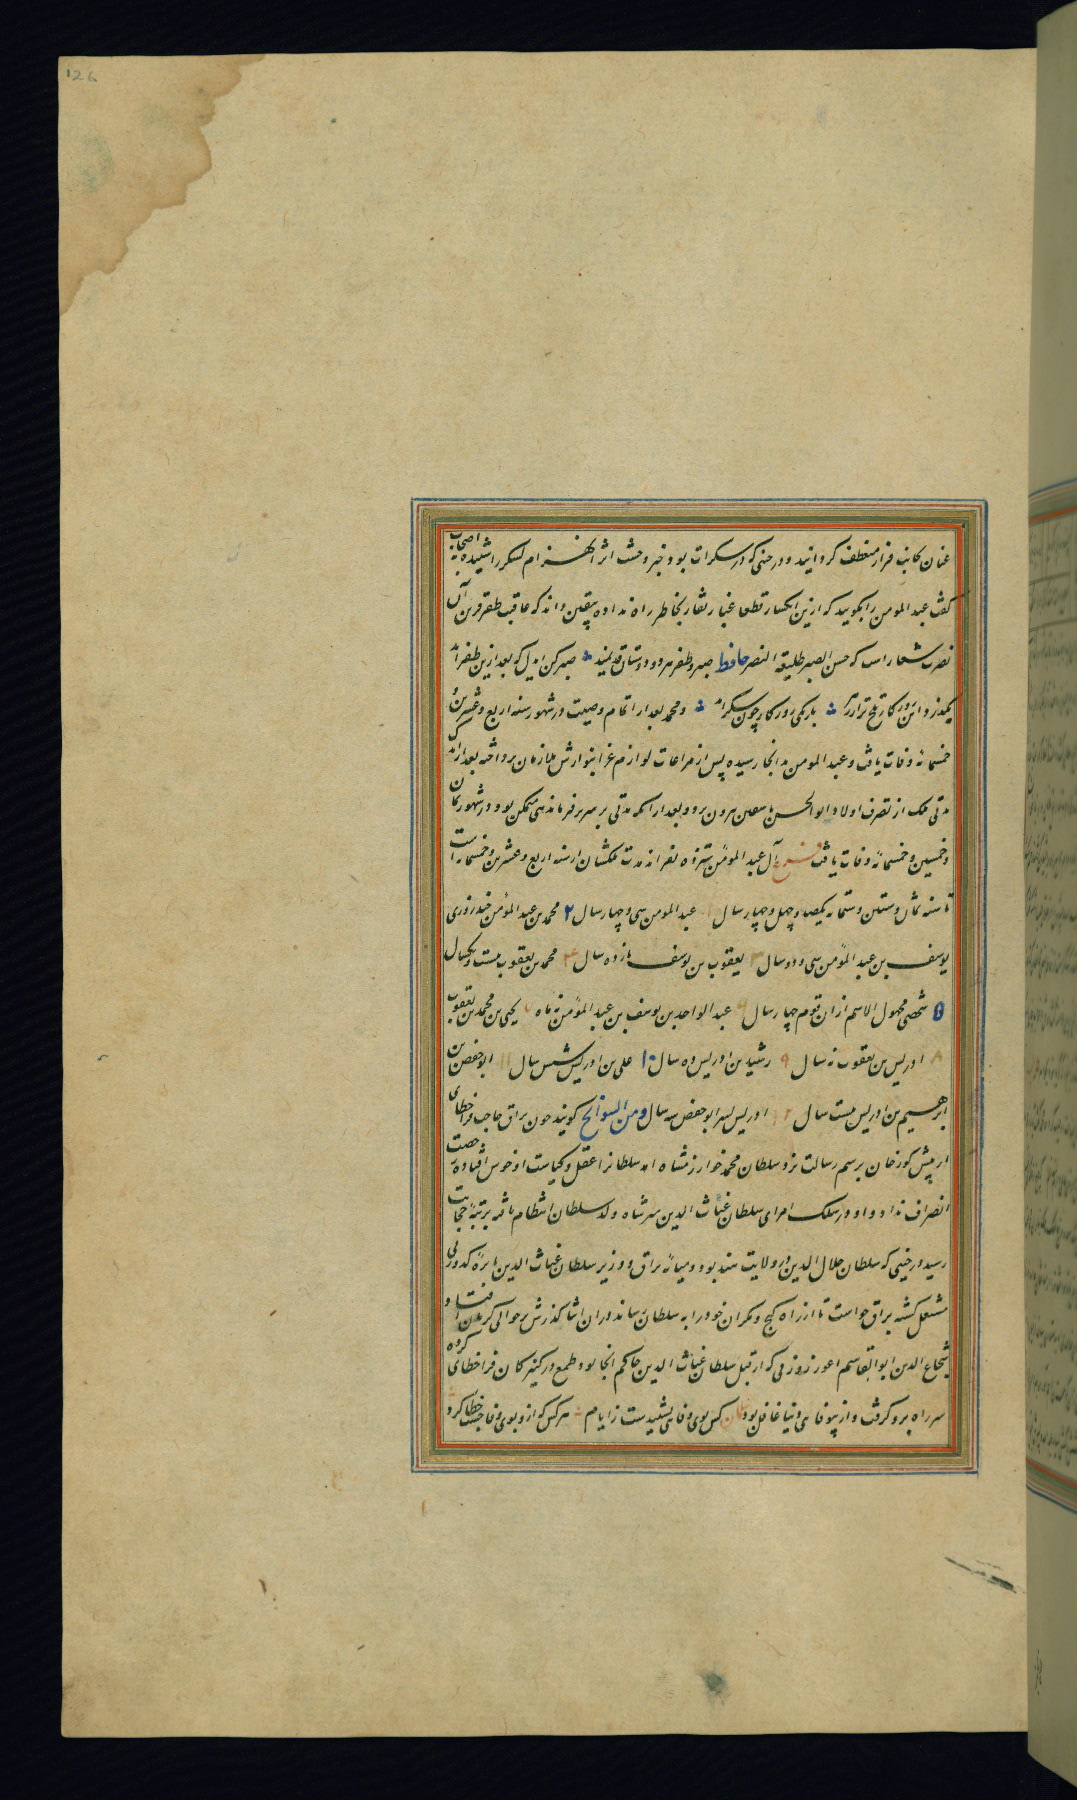 126
عنان بجانب فرار منعطف گردانید و در حینی که در سکرات بود خبر وحشت اثر انهزام لشکر را شنیده باصحاب
گفت عبد المومن را بگویید که ازین انکسار قطعا غبار نقار بخاطر راه نداده بیقین داند که عاقبت ظفر قرین آل
نصرت شعار است که حسن الصبر طلیعة النصر حافظ صبر و ظفر هر دو دوستان قدیمند صبر کن ای دل که بعد ازین ظفر آید
بگذرد این روزگار تلخ تر از زهر بار دگر روزگار چون شکر آید و محمد بعد از اتمام وصیت در شهور سنه اربع و عشرین و
خمسمائه وفات یافت و عبد المومن بدانجا رسیده پس از مراعات لوازم عزا بنوازش ملازمان پرداخته بعد از اندک
مدتی ملک از تصرف اولاد ابو الحسن تاشفین بیرون برد و بعد از آنکه مدتی بر سریر فرماندهی متمکن بود در شهور ثمان
و خمسین و خمسمائه وفات یافت آل عبد المومن سیزده نفرند مدت ملکشان از سنه اربع و عشرین و خمسمائه است
تا سنه ثمان و ستین و ستمائه یکصد و چهل و چهار سال ۱ عبد المومن سی و چهار سال ۲ محمد بن عبد المؤمن چند روزی
یوسف بن عبد المؤمن سی و دو سال ۴ یعقوب بن یوسف پانزده سال محمد بن یعقوب بیست و یکسال
شخصی مجهول الاسم از ان قوم چهار سال ۶ عبد الواحد بن یوسف بن عبد المؤمن نه ماه ۷ یحیی بن محمد بن یعقوب
۸ ادریس بن یعقوب نه سال ۹ رشید بن ادریس ده سال ۱۰ علی بن ادریس شش سال ۱۱ ابو حفص بن
ابرهیم بن ادریس بیست سال ۱۲ ادریس پسر ابو حفص سه سال و من السوانح گویند چون براق حاجب قراخطای
از پیش گورخان برسم رسالت نزد سلطان محمد خوارزمشاه آمد سلطانرا عقل و کیاست او خوش افتاده رخصت
انصراف نداد و او در سلک امرای سلطان غیاث الدین سرشاه ولد سلطان انتظام یافته بمرتبه حجابت
رسید در حینی که سلطان جلال الدین در ولایت هند بود و میانه براق و وزیر سلطان غیاث الدین نایره کدورتی
مشتعل گشته براق خواست تا از راه کیج و مکران خود را به سلطان رساند در ان اثنا گذرش بر حوالی کرمان افتاد و
شجاع الدین ابو القاسم اعور زوزنی که از قبل سلطان غیاث الدین حاکم آنجا بود طمع در کنیزکان قراخطای کرده
سر راه برو گرفت و از بیوفائی دنیا غافل بود کس بوی وفائی نشنیدست ز ایام هر کس که ازو بوی وفا جست خطا کرد